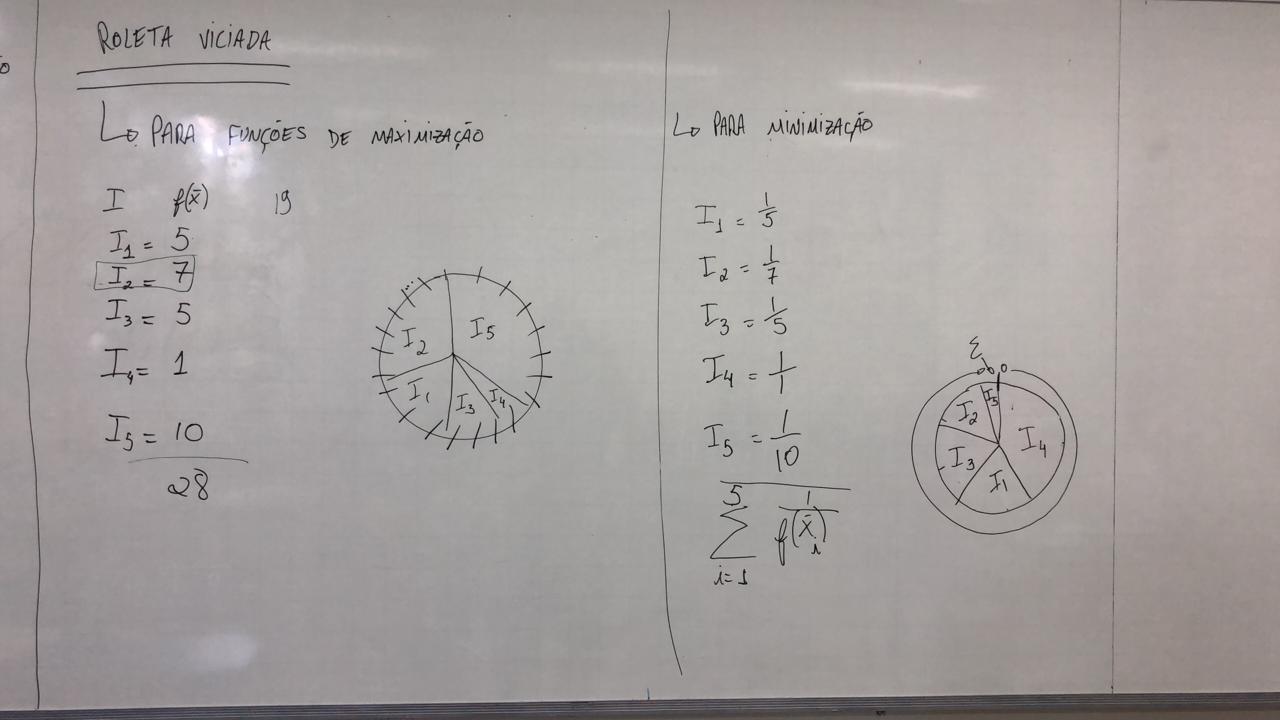 ROLETA VICIADA
↳ PARA FUNÇÕES DE MAXIMIZAÇÃO
I f(x̄) 19
I₁ = 5
I₂ = 7
I₃ = 5
I₄ = 1
I₅ = 10
28
I₅
I₂
I₁
I₃
I₄
↳ PARA MINIMIZAÇÃO
I₁ = 1/5
I₂ = 1/7
I₃ = 1/5
I₄ = 1/1
I₅ = 1/10
5
∑ 1/f(x̄ᵢ)
i=1
Σ
0
I₅
I₂
I₄
I₃
I₁